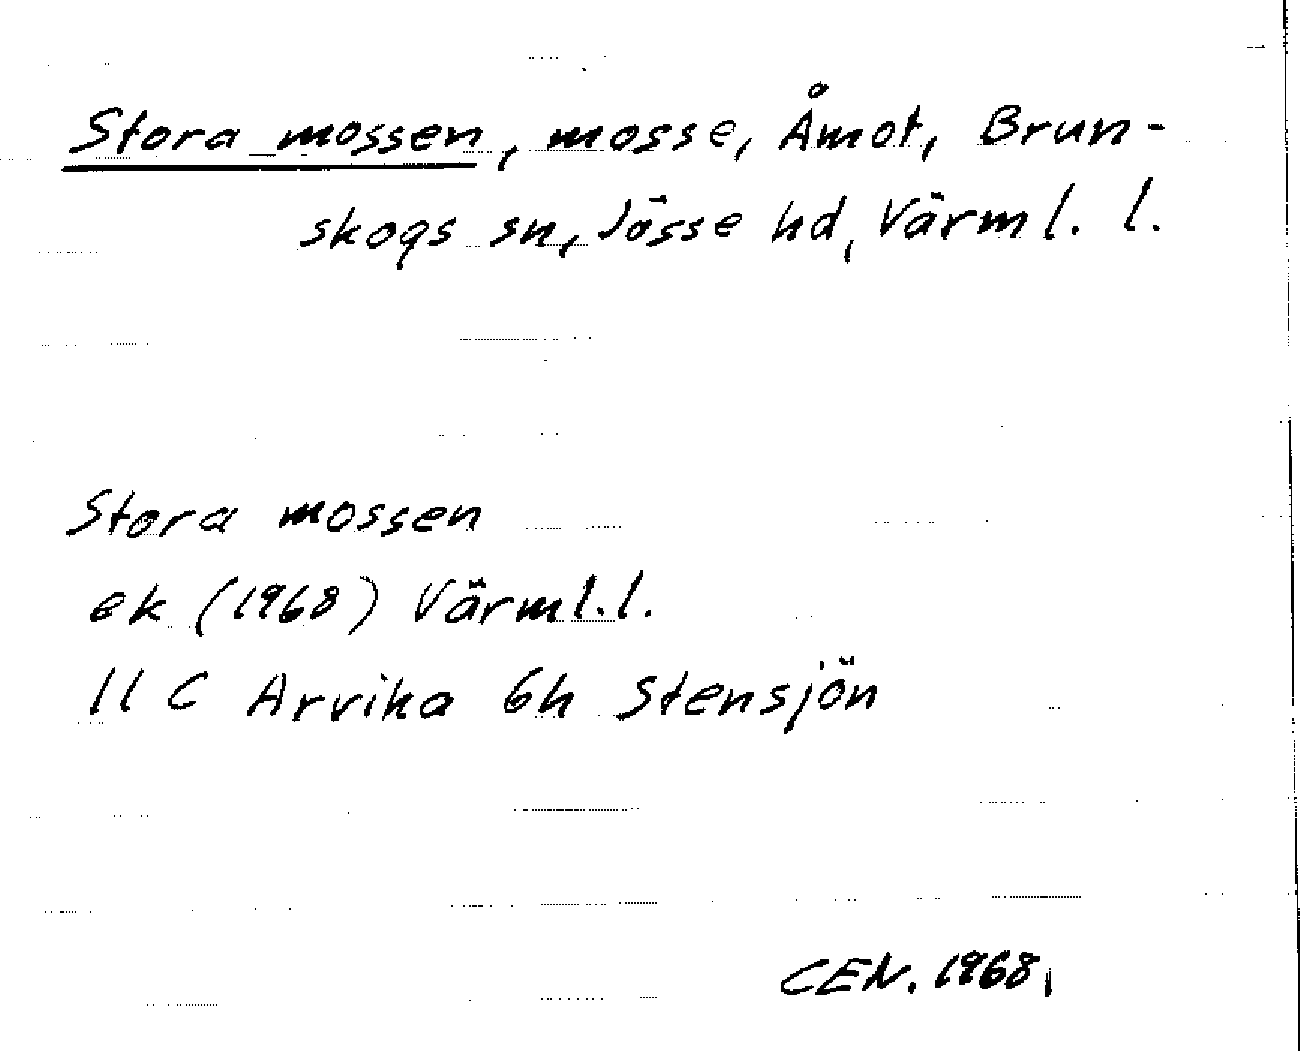 Stora mossen, mosse, Åmot, Brun-
skogs sn, Jösse hd, Värml. l.
Stora mossen
ek (1968) Värml. l.
11 C Arvika 6h Stensjön
CEN. 1968.